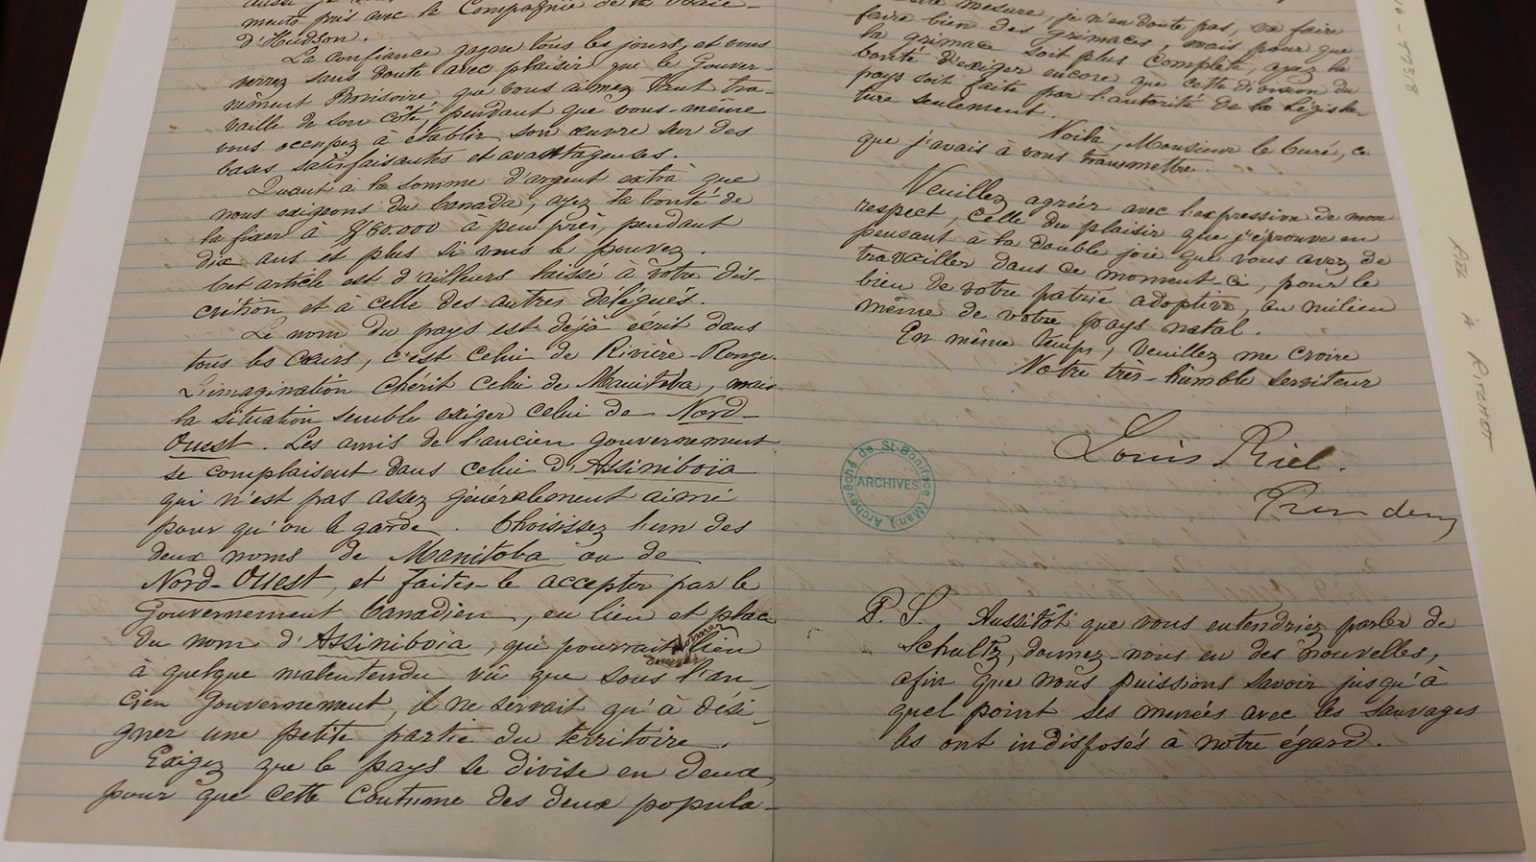 ments pris avec la Compagnie de la Baie
d'Hudson.
La confiance gagne tous les jours, et vous
verrez sans doute avec plaisir que le Gouver-
nement Provisoire que vous aimez tant tra-
vaille de son côté, pendant que vous-même
vous occupez à établir son œuvre sur des
bases satisfaisantes et avantageuses.
Quant à la somme d'argent extra que
nous exigeons du Canada, ayez la bonté de
la fixer à $60.000 à peu près, pendant
dix ans et plus si vous le pouvez.
Cet article est d'ailleurs laissé à votre dis-
crétion et à celle des autres délégués.
Le nom du pays est déjà écrit dans
tous les cœurs, c'est celui de Rivière-Rouge.
L'imagination chérit celui de Manitoba, mais
la situation semble exiger celui de Nord-
Ouest. Les amis de l'ancien gouvernement
se complaisent dans celui d'Assiniboïa
qui n'est pas assez généralement aimé
pour qu'on le garde. Choisissez l'un des
deux noms de Manitoba ou de
Nord-Ouest, et faites-le accepter par le
Gouvernement Canadien, en lieu et place
du nom d'Assiniboia, qui pourrait donner lieu
à quelque malentendu vû que sous l'an-
cien Gouvernement, il ne servait qu'à dési-
gner une petite partie du territoire.
Exigez que le pays se divise en deux,
pour que cette coutume des deux popula-
mesure, je n'en doute pas, va faire
faire bien des grimaces, mais pour que
la grimace soit plus complète, ayez la
bonté d'exiger encore que cette division du
pays soit faite par l'autorité de la Législa-
ture seulement.
Voilà, Monsieur le Curé, ce
que j'avais à vous transmettre.
Veuillez agréer avec l'expression de mon
respect, celle du plaisir que j'éprouve en
pensant à la double joie que vous avez de
travailler dans ce moment-ci, pour le
bien de votre patrie adoptive, au milieu
même de votre pays natal.
En même temps, veuillez me croire
Votre très-humble serviteur
Louis Riel.
Archevêché de St-Boniface (Man)
ARCHIVES
P. S. Aussitôt que vous entendriez parler de
Schultz, donnez-nous en des nouvelles,
afin que nous puissions savoir jusqu'à
quel point ses menées avec les Sauvages
les ont indisposés à notre égard.
Riel à Ritchot